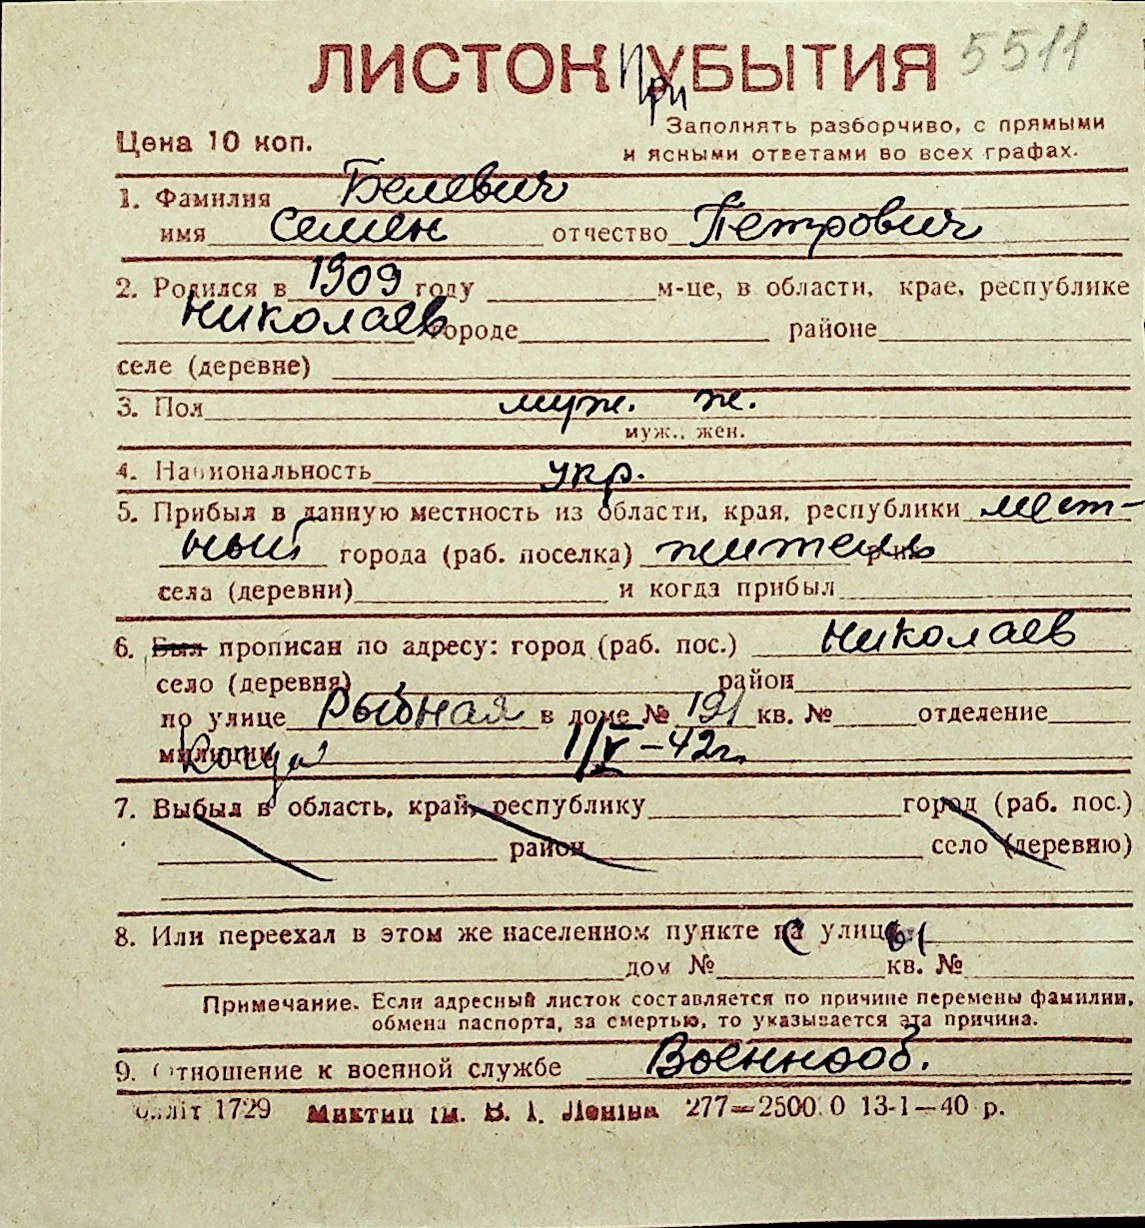 ЛИСТОК ПриУБЫТИЯ 5511
Цена 10 коп.
Заполнять разборчиво, с прямыми
и ясными ответами во всех графах.
1. Фамилия Белевич
имя Семен отчество Петрович
2. Родился в 1909 году м-це, в области, крае, республике
Николаев городе районе
селе (деревне)
3. Пол муж. ж.
муж., жен.
4. Национальность укр.
5. Прибыл в данную местность из области, края, республики мест-
ный города (раб. поселка) житель
села (деревни) и когда прибыл
6. Был прописан по адресу: город (раб. пос.) Николаев
село (деревня) район
по улице Рыбная в доме № 191 кв. № отделение
милиции Когда 1/V-42г.
7. Выбыл в область, край, республику город (раб. пос.)
район село (деревню)
8. Или переехал в этом же населенном пункте с улицы
дом № кв. №
Примечание. Если адресный листок составляется по причине перемены фамилии,
обмена паспорта, за смертью, то указывается эта причина.
9. Отношение к военной службе Военнооб.
1729 ім. В. І. Леніна 277—2500 0 13-1—40 р.